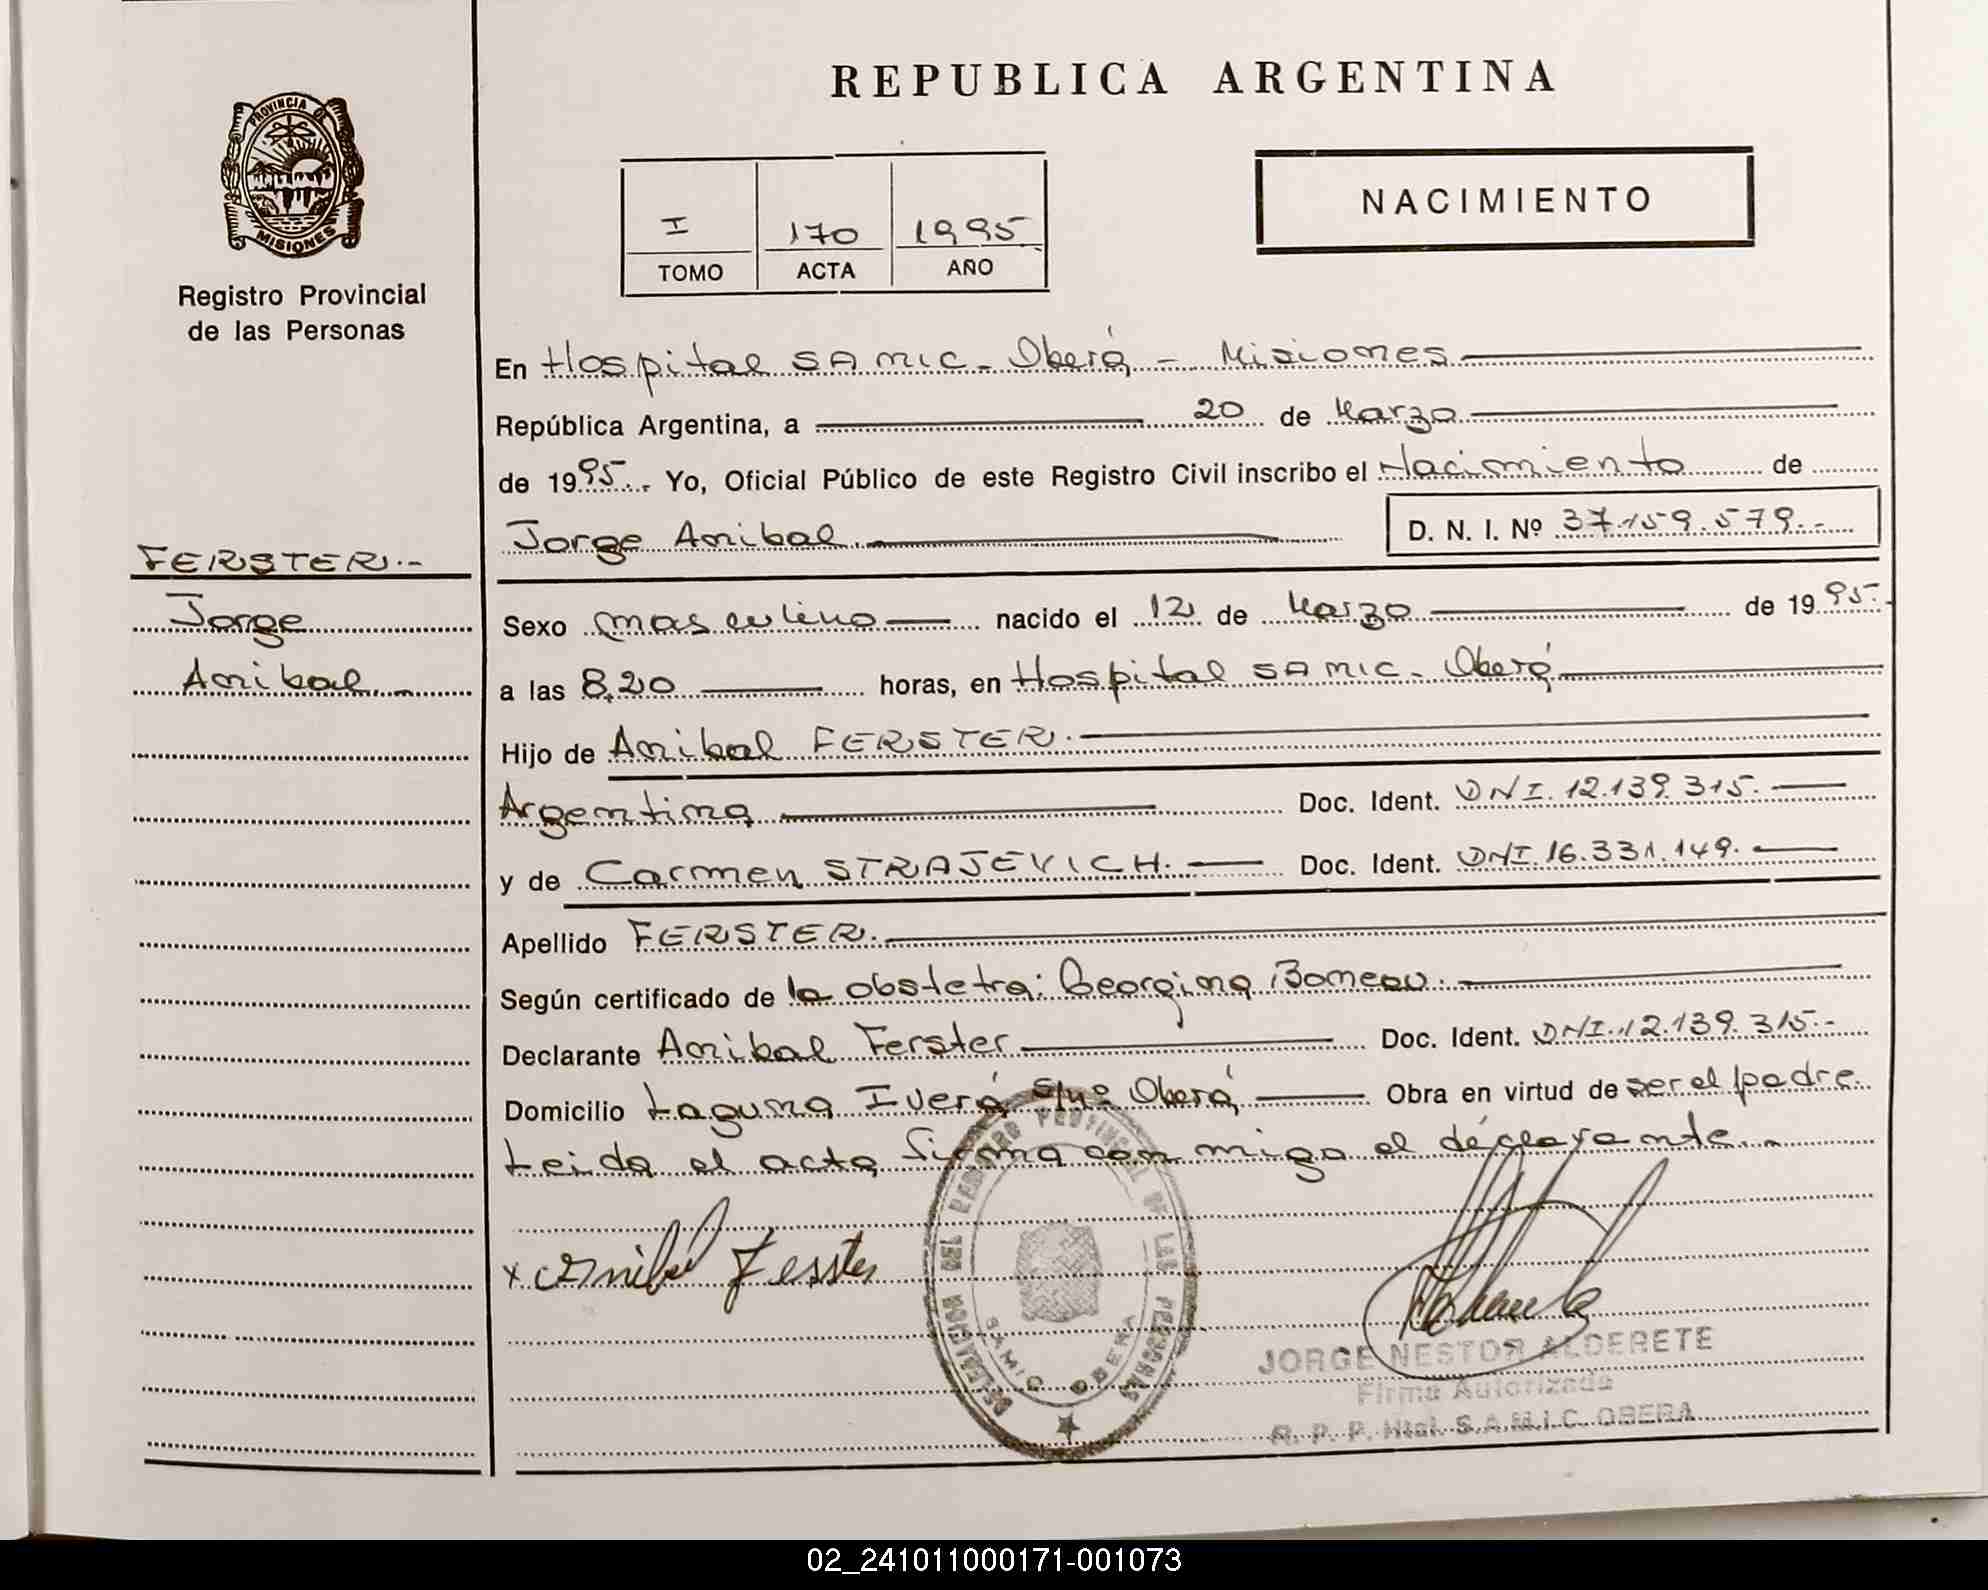 REPUBLICA ARGENTINA
PROVINCIA DE
MISIONES
Registro Provincial
de las Personas
I 170 1995
TOMO ACTA AÑO
NACIMIENTO
En Hospital SAMIC - Oberá - Misiones
República Argentina, a 20 de Marzo
de 1995.- Yo, Oficial Público de este Registro Civil inscribo el Nacimiento de
Jorge Anibal. D. N. I. Nº 37.159.579.-
FERSTER.-
Jorge
Anibal.-
Sexo masculino nacido el 12 de Marzo de 1995-
a las 8,20 horas, en Hospital SAMIC - Oberá
Hijo de Anibal FERSTER.
Argentina Doc. Ident. DNI. 12.139.315.
y de Carmen STRAJEVICH. Doc. Ident. DNI. 16.331.149.
Apellido FERSTER.
Según certificado de la obstetra: Georgina
Declarante Anibal Ferster Doc. Ident. DNI. 12.139.315.-
Domicilio Laguna Iverá S/Nº Oberá Obra en virtud de ser el padre
Leida el acta firma con migo el declarante.-
x Anibal Ferster
DELEGACION DEL REGISTRO PROVINCIAL DE LAS PERSONAS
SAMIC OBERA
JORGE NESTOR ALDERETE
Firma Autorizada
R. P. P. Htal. S.A.M.I.C. OBERA
02_241011000171-001073